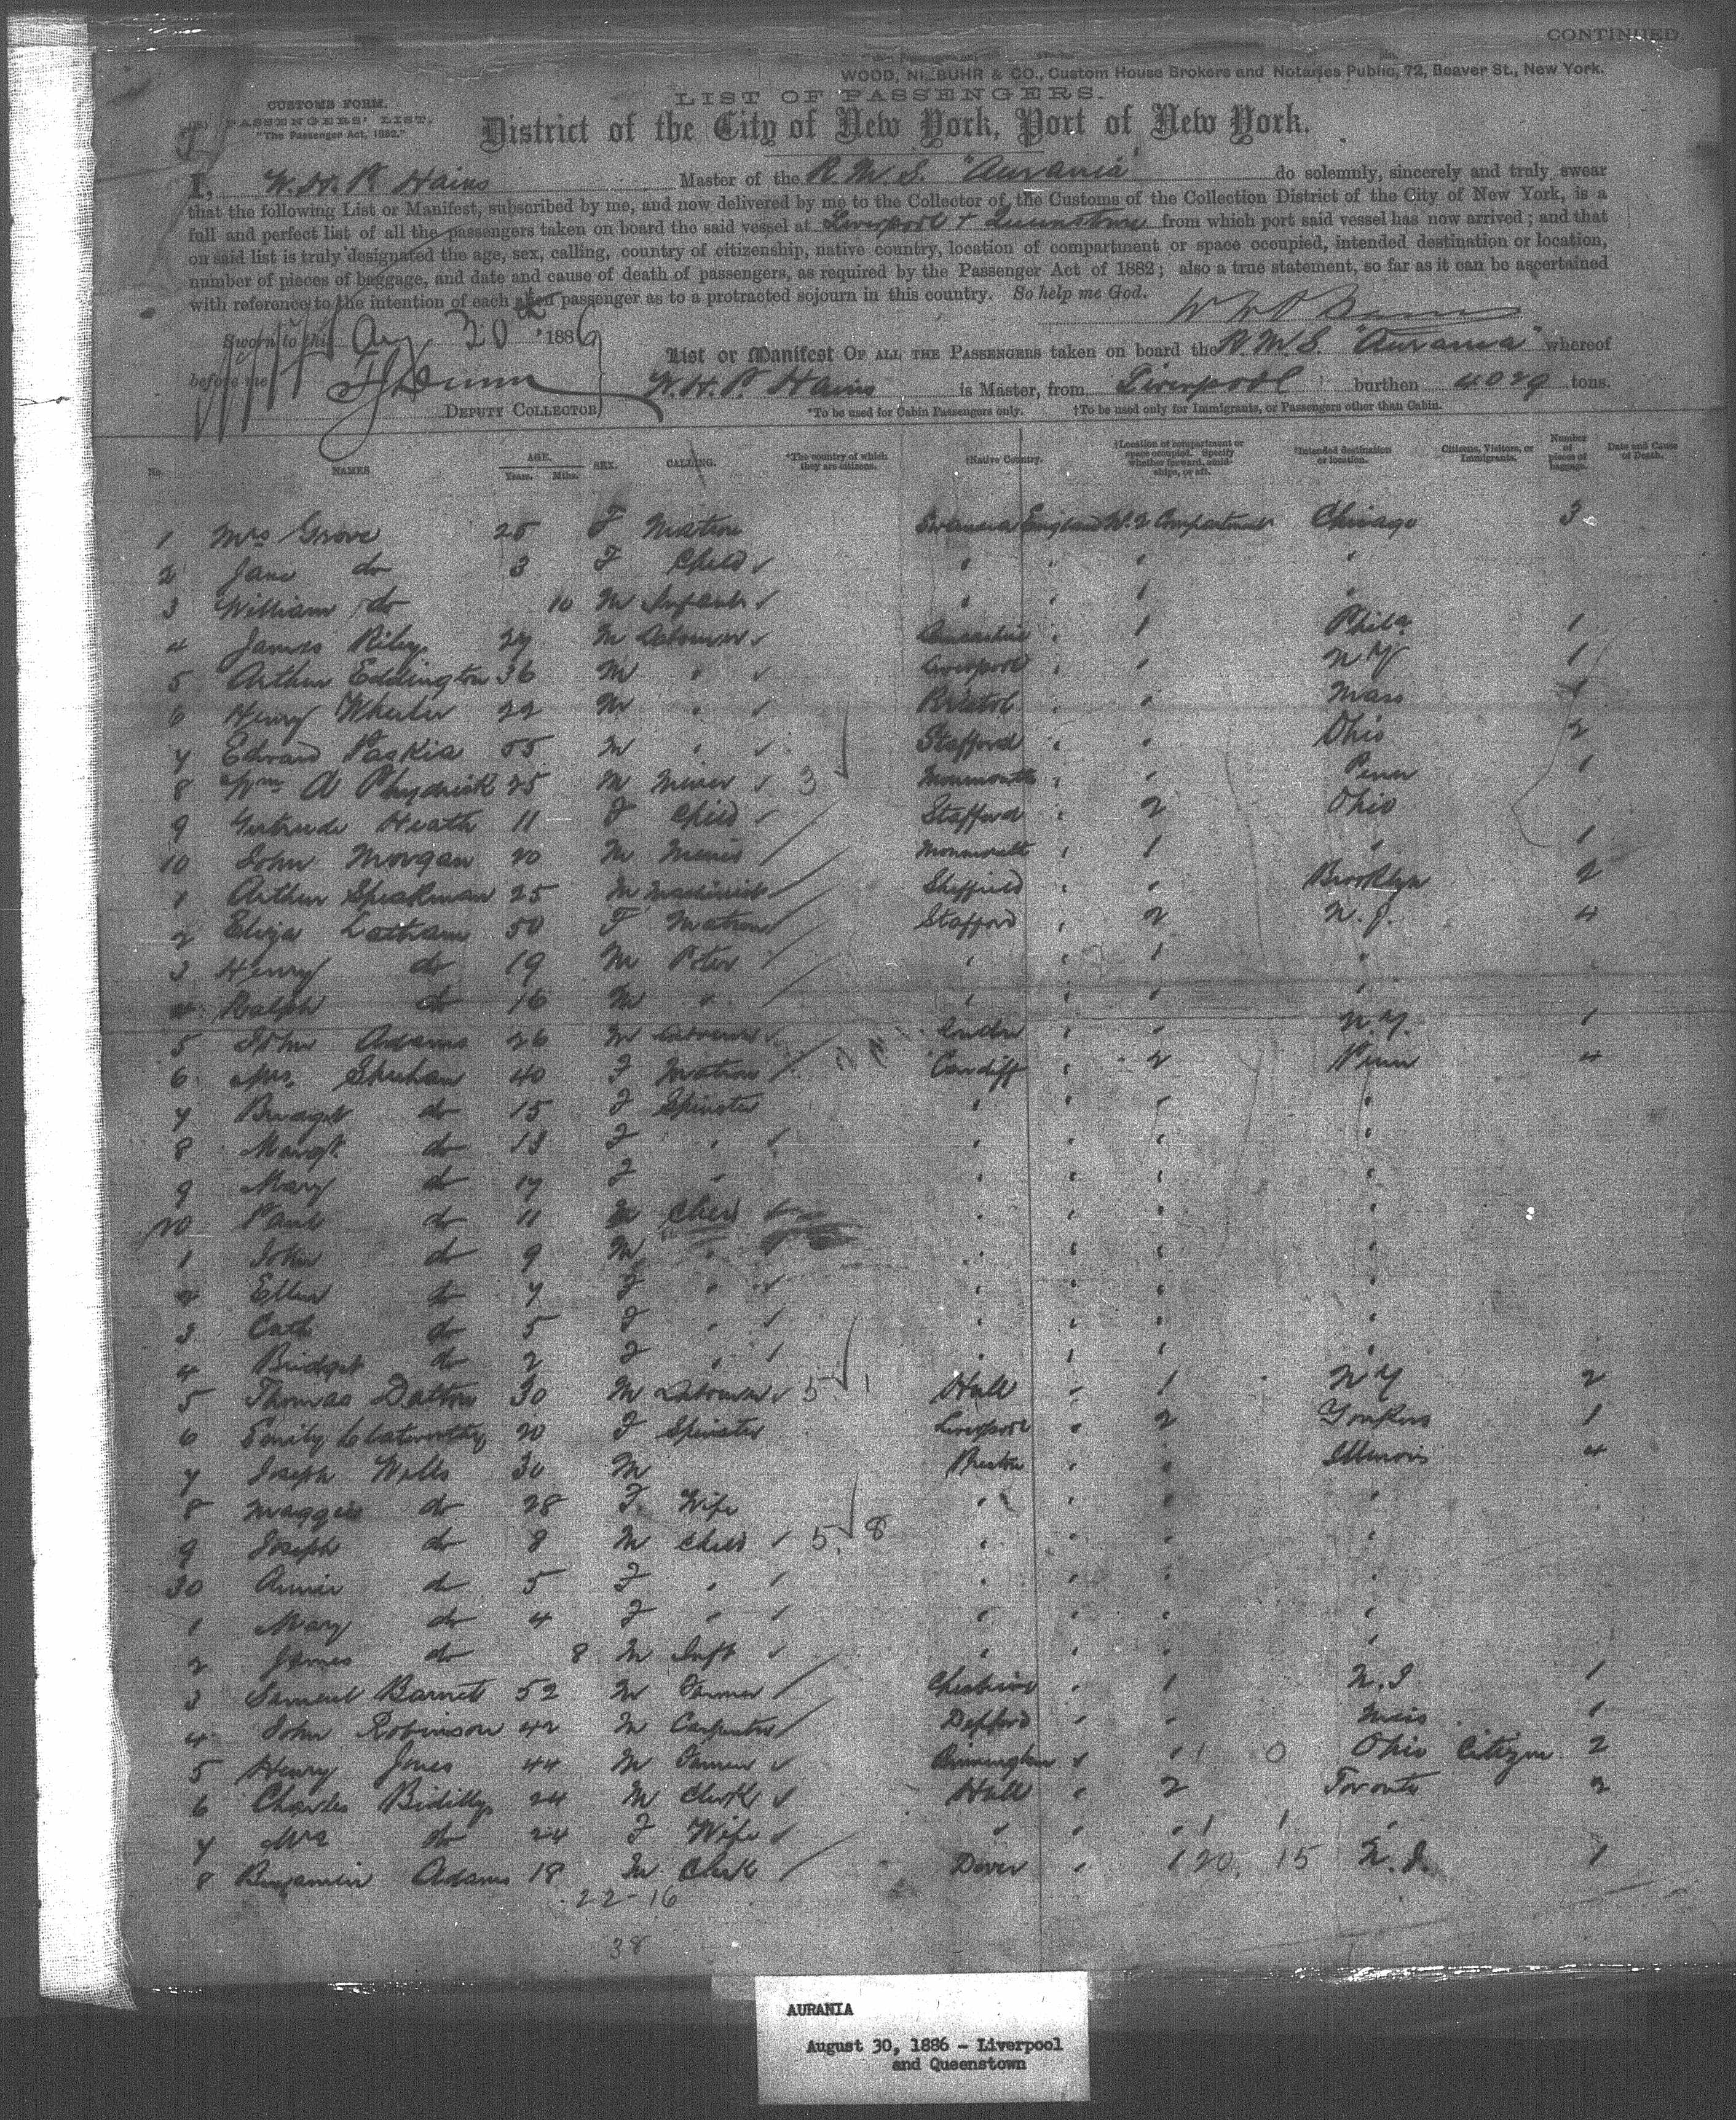 CONTINUED
WOOD, NIEBUHR & CO., Custom House Brokers and Notaries Public, 72, Beaver St., New York.
CUSTOMS FORM.
PASSENGERS' LIST.
"The Passenger Act, 1882."
LIST OF PASSENGERS.
District of the City of New York, Port of New York.
I, W. H. P. Hains Master of the R.M.S. "Aurania" do solemnly, sincerely and truly swear
that the following List or Manifest, subscribed by me, and now delivered by me to the Collector of the Customs of the Collection District of the City of New York, is a
full and perfect list of all the passengers taken on board the said vessel at Liverpool & Queenstown from which port said vessel has now arrived; and that
on said list is truly designated the age, sex, calling, country of citizenship, native country, location of compartment or space occupied, intended destination or location,
number of pieces of baggage, and date and cause of death of passengers, as required by the Passenger Act of 1882; also a true statement, so far as it can be ascertained
with reference to the intention of each passenger as to a protracted sojourn in this country. So help me God.
Sworn to this Aug 30th 1886
before me
DEPUTY COLLECTOR
List or Manifest OF ALL THE PASSENGERS taken on board the R.M.S. "Aurania" whereof
W. H. P. Hains is Master, from Liverpool burthen 4029 tons.
*To be used for Cabin Passengers only. †To be used only for Immigrants, or Passengers other than Cabin.
No. NAMES AGE. Years. Mths. SEX. CALLING. *The country of which they are citizens. †Native Country. †Location of compartment or space occupied. Specify whether forward, amidships, or aft. *Intended destination or location. Citizens, Visitors, or Immigrants. Number of pieces of baggage. Date and Cause of Death.
1 Mrs Grove 25 F Matron Swansea England Chicago 3
2 Jane do 3 F Child "
3 William do 10 M Infant "
4 James Riley 27 M Labourer Lancashire " 1 Phila 1
5 Arthur Eddington 36 M " Liverpool " " N Y 1
6 Henry Wheeler 22 M " Bristol " " Mass 1
7 Edward Paskis 55 M " Stafford " " Ohio 2
8 Wm A 25 M Miner 3 Monmouth " " Penn 1
9 Gertrude Heath 11 F Child Stafford " 2 Ohio
10 John Morgan 20 M Miner Monmouth " 1 " 1
1 Arthur Speakman 25 M Machinist Sheffield " " Brooklyn 2
2 Eliza Latham 50 F Matron Stafford " 2 N. J. 4
3 Henry do 19 M Potter " " 1 "
4 Ralph do 16 M " " " " "
5 John Adams 26 M Labourer " " N.Y. 1
6 Mrs Sheehan 40 F Matron Cardiff " 2 Penn 4
7 Bridget do 15 F Spinster " " " "
8 Margt do 13 F " " " " "
9 Mary do 17 F " " " " "
20 Paul do 11 M Child " " " "
1 John do 9 M " " " " "
2 Ellen do 7 F " " " " "
3 Cath do 5 F " " " " "
4 Bridget do 2 F " " " " "
5 Thomas Dalton 30 M Labourer 5 1 Hull " 1 N Y 2
6 Emily Clatworthy 20 F Spinster Liverpool " 2 Yonkers 1
7 Joseph Wells 30 M Preston " " Illinois 4
8 Maggie do 28 F Wife " " " "
9 Joseph do 8 M Child 5 8 " " " "
30 Annie do 5 F " " " " "
1 Mary do 4 F " " " " "
2 James do 8 M Inft " " " "
3 Samuel Barnet 52 M Farmer Cheshire " 1 N.J 1
4 John Robinson 42 M Carpenter Depford " " 1
5 Henry Jones 44 M Farmer Birmingham " " 1 0 Ohio Citizen 2
6 Charles Bidilly 24 M Clerk Hull " 2 Toronto 2
7 Mrs do 24 F Wife " " " 1 1 "
8 Benjamin Adams 18 M Clerk Dover " 1 20 15 N. J. 1
22-16
38
AURANIA
August 30, 1886 - Liverpool
and Queenstown